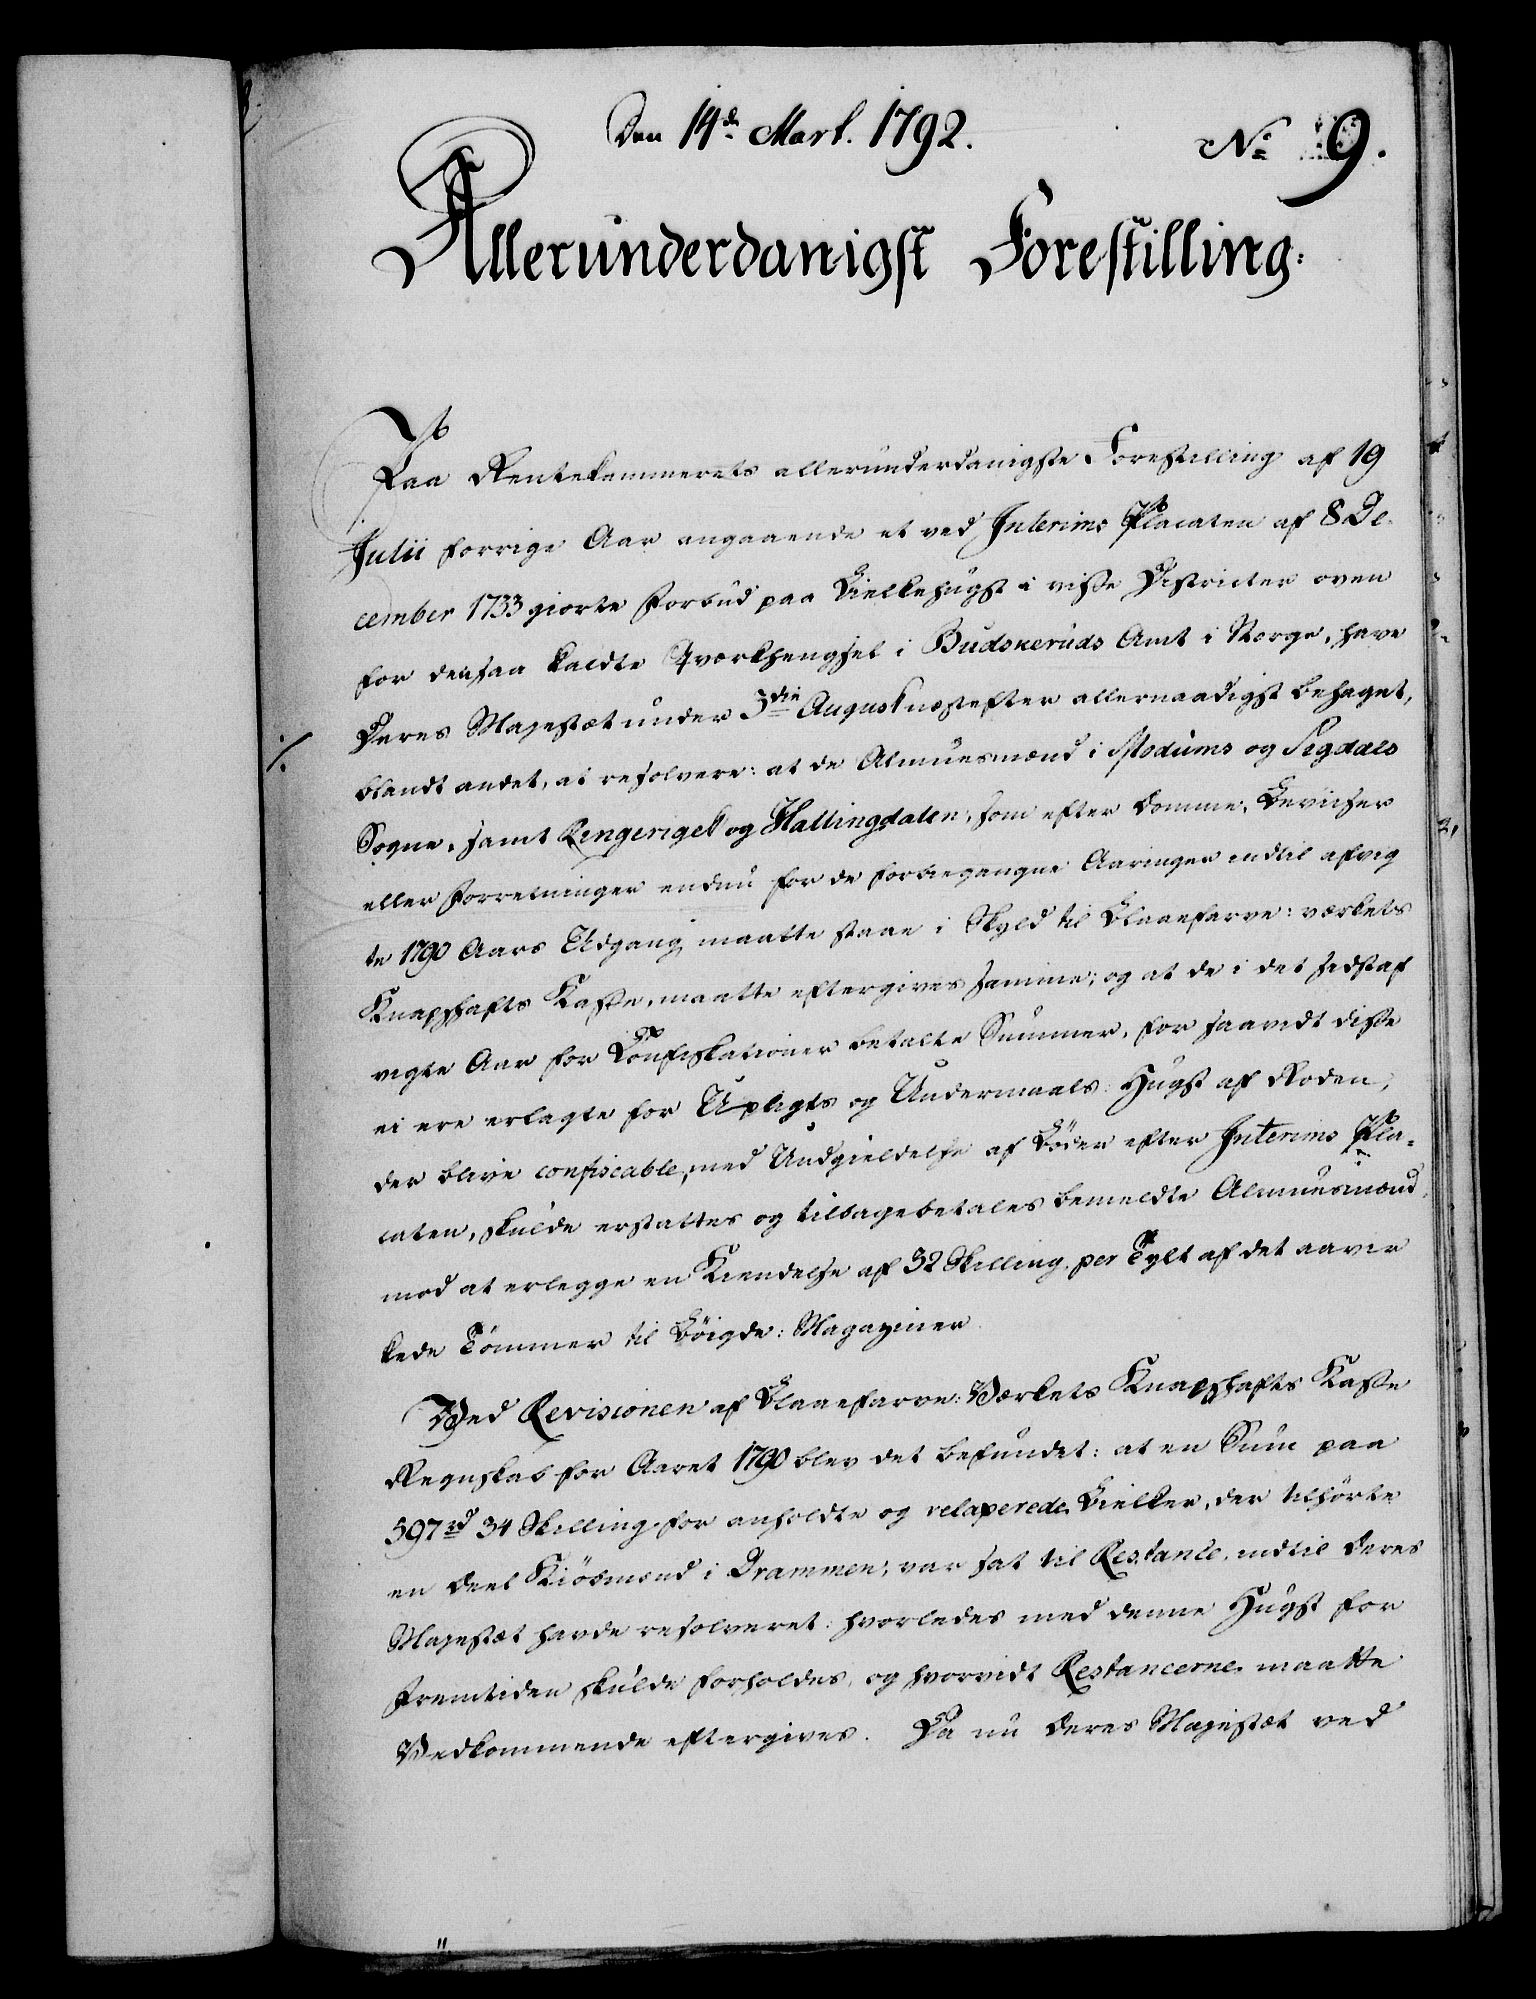 Den 14de Mart. 1792.
No 9.
Allerunderdanigst Forestilling:
Paa Rentekammerets allerunderdanigste Forestilling af 19
Julii forrige Aar angaaende et ved Interims Placaten af 8 De-
cember 1733 giorte Forbud paa Bielkehugst i visse Districter oven
for den saa kaldte Tværlhengsel i Budskeruds Amt i Norge, have
Deres Majestæt under 3die August næstefter allernaadigst behaget,
blandt andet, at resolvere: at de Almuesmænd i Modums og Sigdals
Sogne, samt Ringeriget og Hallingdalen, som efter Domme, Beviiser
eller Forretninger endnu for de forbiegangne Aaringer indtil afvig
te 1790 Aars Udgang maatte staae i Skyld til Blaaefarve: værkets
Knapshafts Kasse, maatte eftergives samme; og at de i det sidst af
vigte Aar for Confiskationer betalte Summer, for saavidt disse
ei ere erlagte for Upligts og Undermaals: Hugst af Roden,
der blive confiscable, med Undgieldelse af Bøder efter Interims Pla-
caten, skulde erstattes og tilbagebetales bemeldte Almuesmænd,
mod at erlegge en Kiendelse af 32 Skilling per Tylt af det aavir
kede Tømmer til Bøigde: Magaziner.
Ved Revisionen af Blaaefarve: Værkets Knapshafts Kasse
Regnskab for Aaret 1790 blev det befundet: at en Sum paa
597 rd 34 Skilling for anholdte og relaxerede Bielker, der tilhørte
en Deel Kiøbmænd i Drammen, var sat til Restance, indtil Deres
Majestæt havde resolveret: hvorledes med denne Hugst for
Fremtiden skulde forholdes, og hvorvidt Restancerne maatte
Vedkommende eftergives. Da nu Deres Majestæt ved